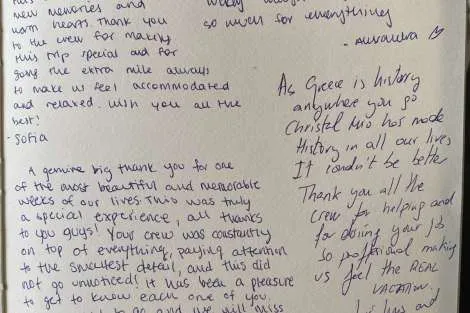 new memories and
warm hearts. Thank you
to the crew for making
this trip special and for
going the extra mile always
to make us feel accommodated
and relaxed. Wish you all the
best!
- Sofia
so much for everything
A genuine big thank you for one
of the most beautiful and memorable
weeks of our lives. This was truly
a special experience, all thanks
to you guys! Your crew was constantly
on top of everything, paying attention
to the smallest detail, and this did
not go unnoticed! It has been a pleasure
to get to know each one of you.
to go and we will miss
As Greece is history
anywhere you go
Christal Mio has made
History in all our lives
It couldn't be better
Thank you all the
crew for helping and
for doing your job
so proffesional making
us feel the REAL
VACATION.